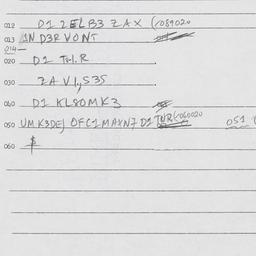 012 D1 2ELB3 ZAX (089020
013 1N D3R VONT
014
020 D1 T:1.R
030 ZA V1,S35
040 D1 KL80MK3
050 UM K3DEJ OFC1MAXN7 D1 051
060 $